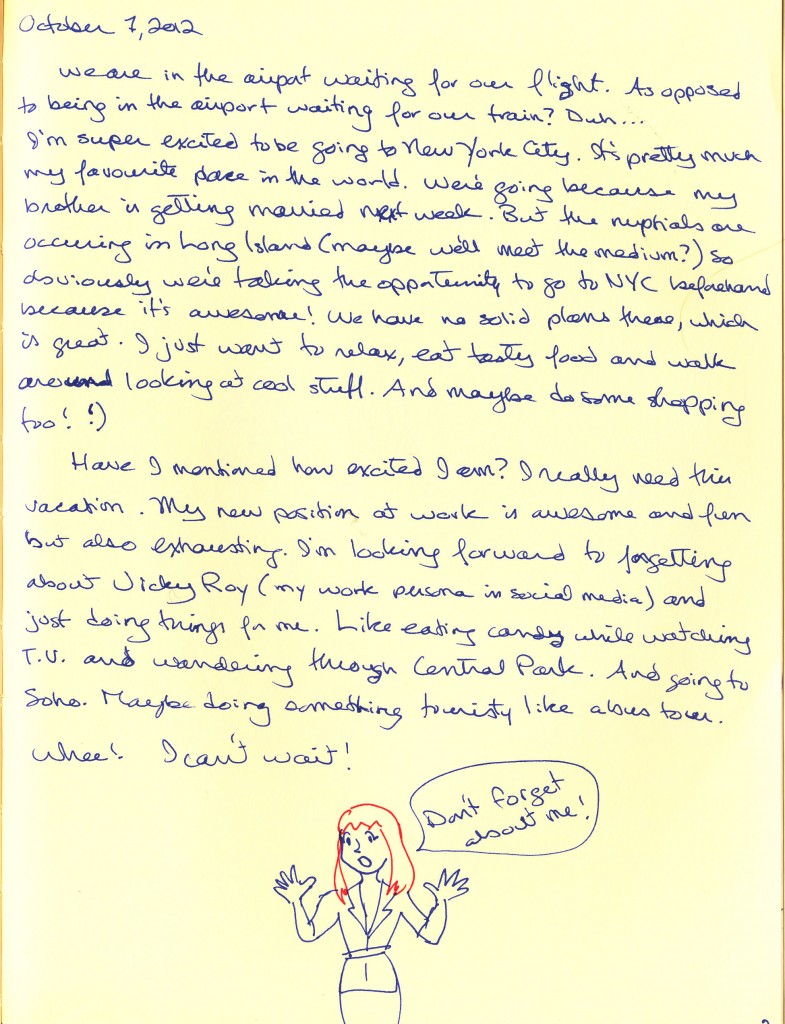 October 7, 2012
We are in the airport waiting for our flight. As opposed
to being in the airport waiting for our train? Duh...
I'm super excited to be going to New York City. It's pretty much
my favourite place in the world. We're going because my
brother is getting married next week. But the nuptials are
occuring in Long Island (maybe we'll meet the medium?) so
obviously we're taking the opportunity to go to NYC beforehand
because it's awesome! We have no solid plans there, which
is great. I just want to relax, eat tasty food and walk
around looking at cool stuff. And maybe do some shopping
too! :)
Have I mentioned how excited I am? I really need this
vacation. My new position at work is awesome and fun
but also exhausting. I'm looking forward to forgetting
about Vicky Roy (my work persona in social media) and
just doing things for me. Like eating candy while watching
T.V. and wandering through Central Park. And going to
Soho. Maybe doing something touristy like a bus tour.
Whee! I can't wait!
Don't forget
about me!